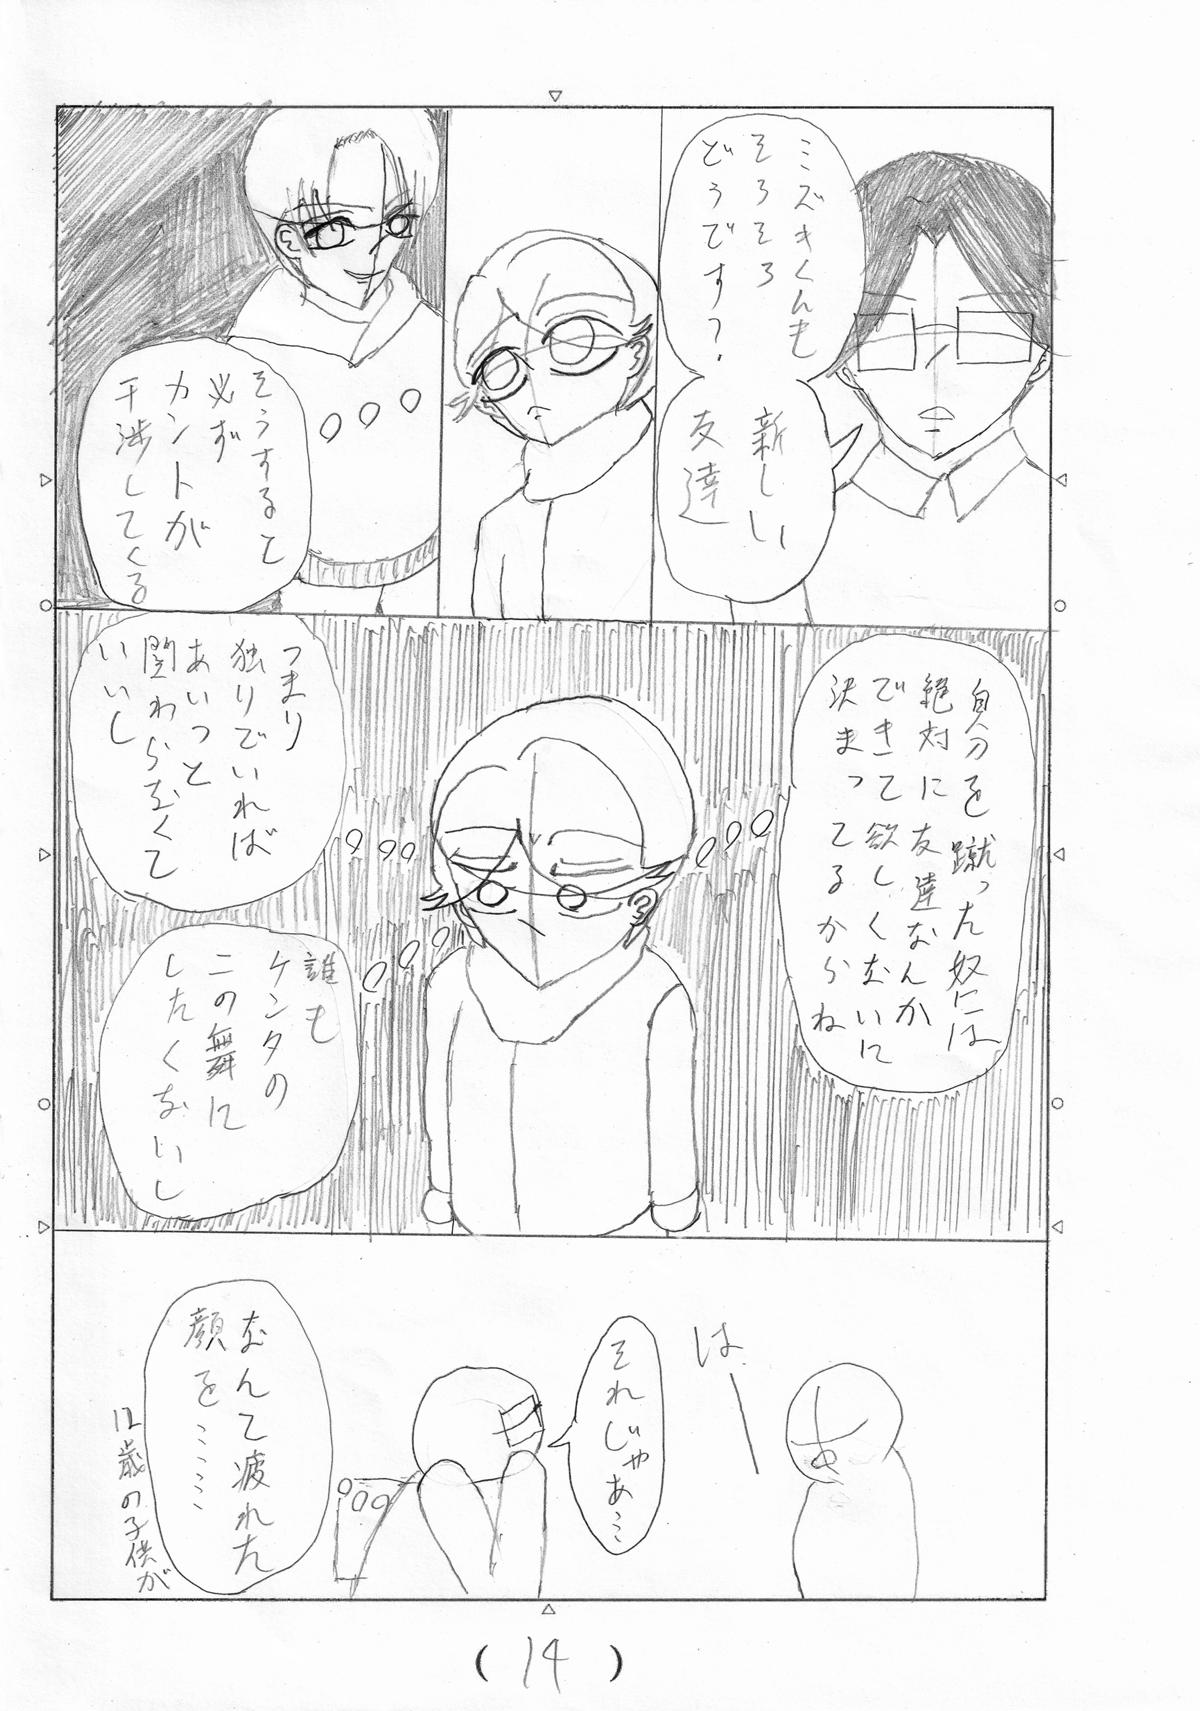 ミズキくんも
そろそろ
どうです?
新しい
友達
そうすると
必ず
カントが
干渉してくる
自分を蹴った奴には
絶対に友達なんか
できて欲しくないに
決まってるからね
つまり
独りでいれば
あいつと
関わらなくて
いいし
誰も
ケンタの
二の舞に
したくないし
は
それじゃあ…
なんて疲れた
顔を……
12歳の子供が
(14)